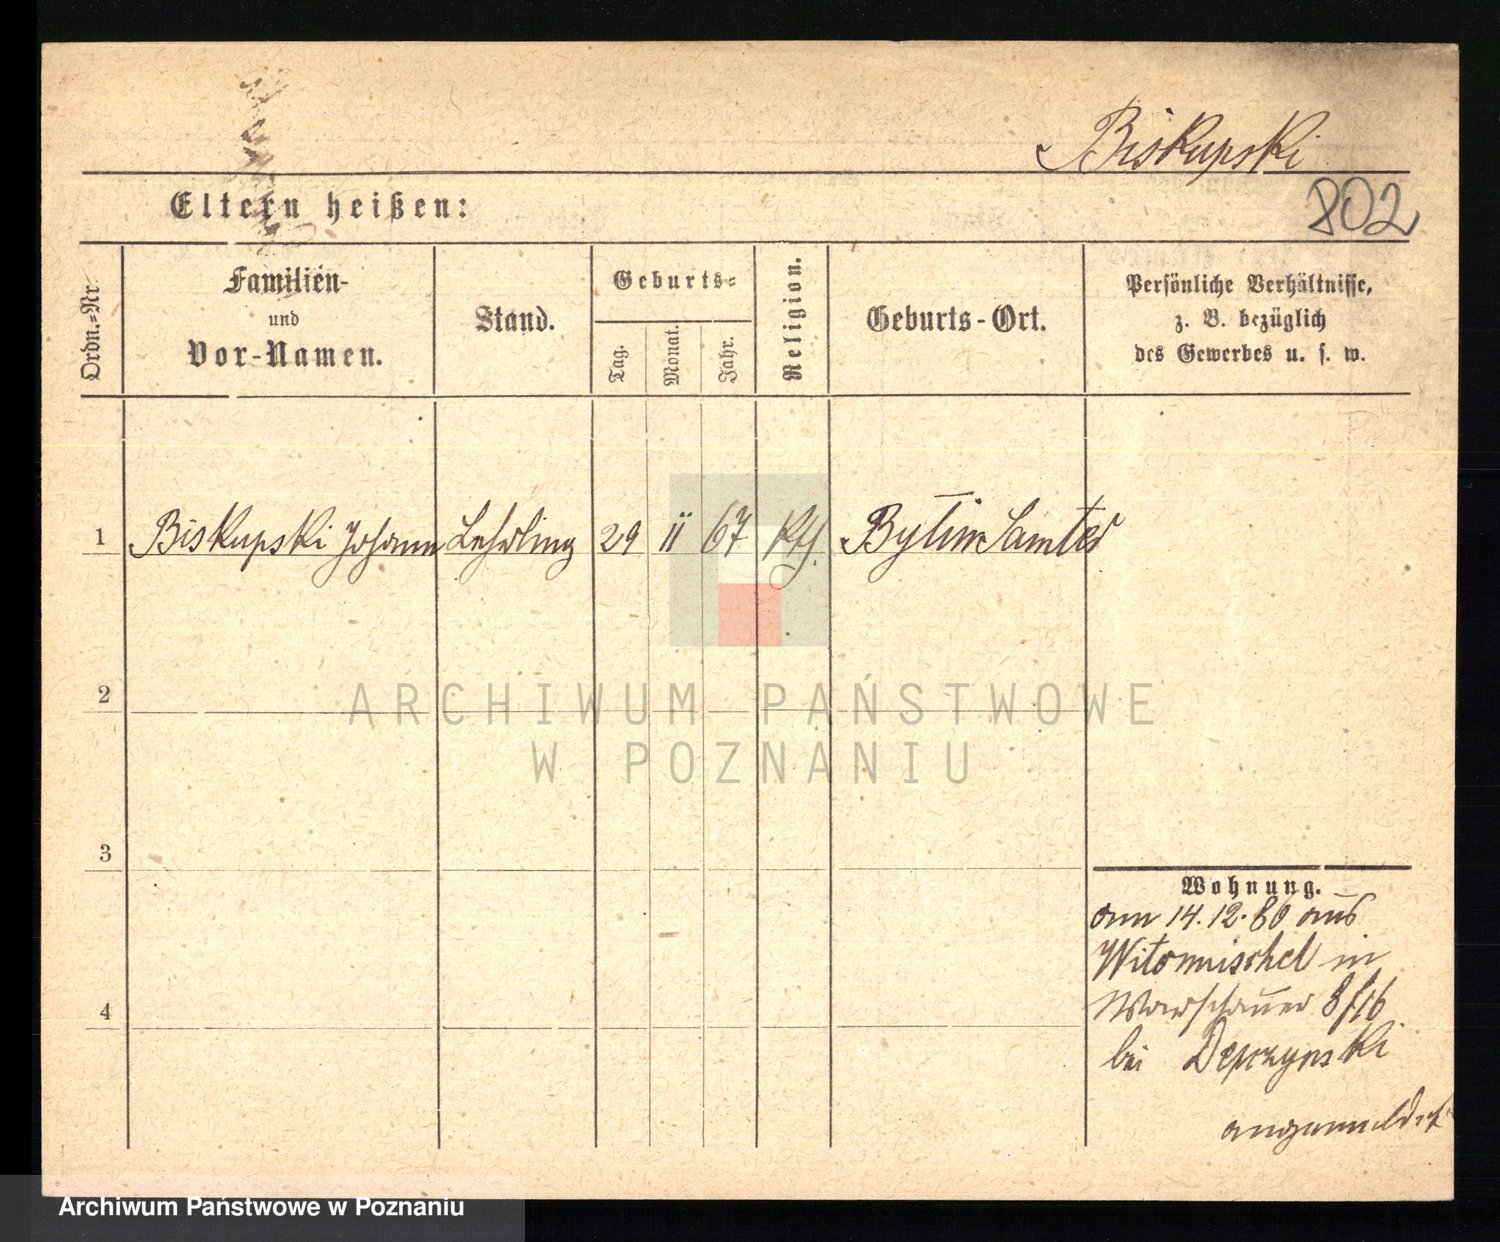 Biskupski
802
Eltern heißen:
Ordn.=Nr.
Familien-
und
Vor-Namen.
Stand.
Geburts=
Tag.
Monat.
Jahr.
Religion.
Geburts-Ort.
Persönliche Verhältnisse,
z. B. bezüglich
des Gewerbes u. s. w.
1 Biskupski Johann Lehrling 29 ii 67 kth. Bytin Samter
2
ARCHIWUM PAŃSTWOWE
W POZNANIU
3
Wohnung.
am 14.12.80 aus
in
4
Warschauer 8/16
bei
angemeldet
Archiwum Państwowe w Poznaniu